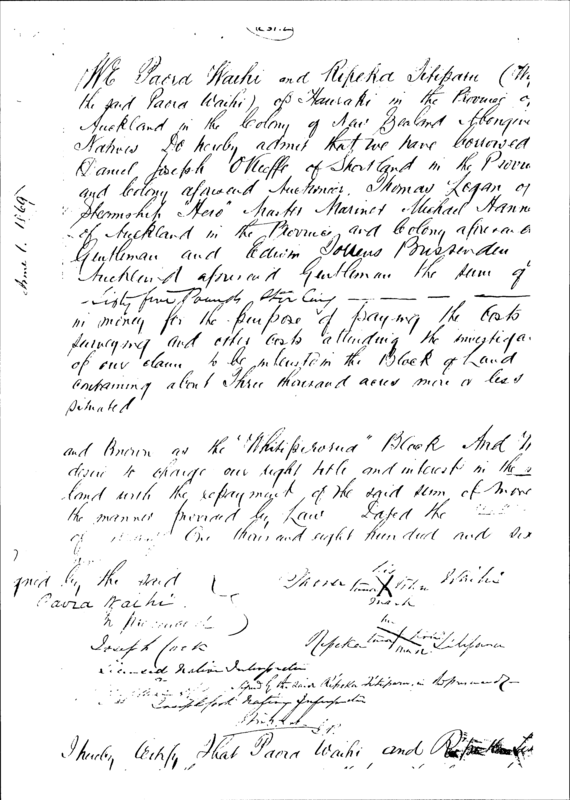 WE Paora Waihi and Ripeka Titipara (
the said Paora Waihi) of Hauraki in the Province
Auckland in the Colony of New Zealand Aborigin
Natives Do hereby admit that we have borrowed
Daniel Joseph O'Keeffe of Shortland in the Provin
and Colony aforesaid Auctioneer Thomas Logan of
Steamship "Hero" Master Mariner Michael Hann
of Auckland in the Province and Colony aforesa
Gentleman and Edwin Bussenden
Auckland aforesaid Gentleman the sum of
Sixty five Pounds Sterling
in money for the purpose of paying the costs
surveying and other costs attending the investiga
of our claim to be in the Block of Land
containing about Three thousand acres more or less
situated
and known as the Block And
desire to charge our right title and interest in the
land with the repayment of the said sum of mone
the manner provided by Law Dated the
of One thousand eight hundred and six
June 1. 1869
gned by the said
Paora Waihi
in presence of
Joseph Cook
Licensed Native Interpreter
Paora his mark Waihi
Ripeka mark Titipara
Signed by the said Ripeka Titipara in the presence of
Joseph Cook Native Interpreter
J.P.
I hereby Certify That Paora Waihi and